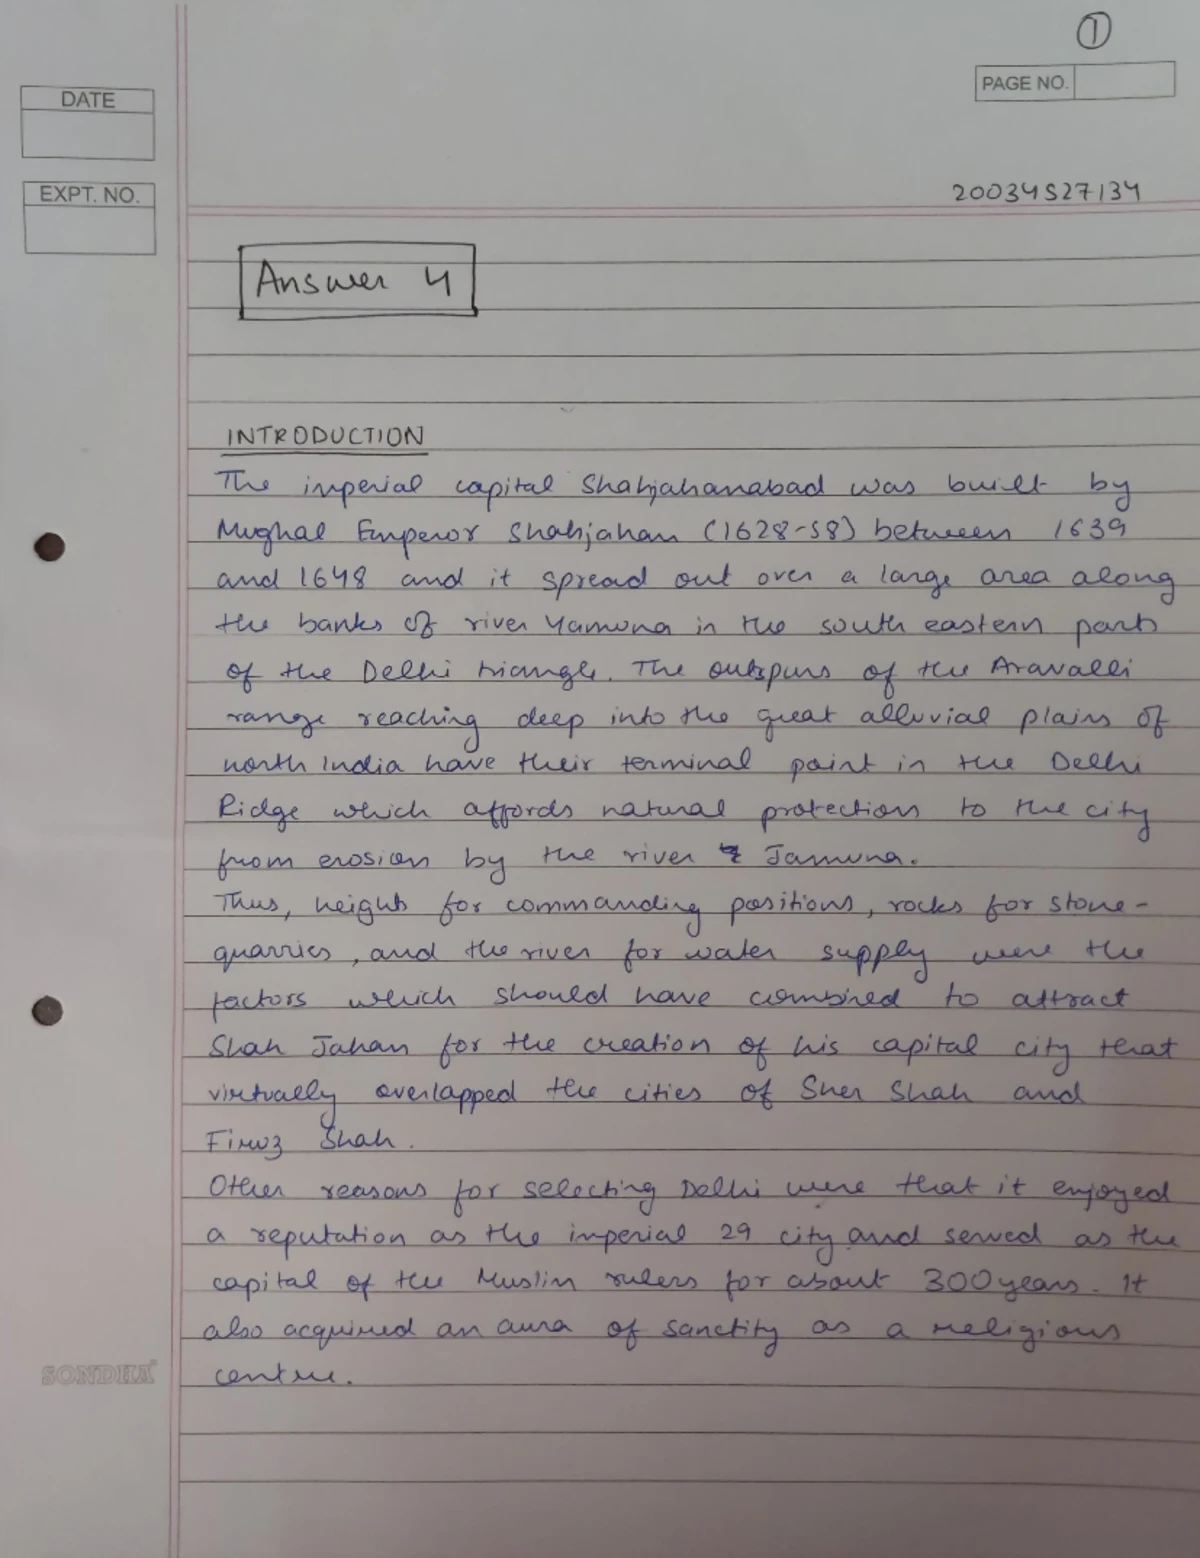 ①
PAGE NO.
DATE
EXPT. NO.
20034527134
Answer 4
INTRODUCTION
The imperial capital Shahjahanabad was built by
Mughal Emperor Shahjahan (1628-58) between 1639
and 1648 and it spread out over a large area along
the banks of river Yamuna in the south eastern parts
of the Delhi triangle. The outspurs of the Aravalli
range reaching deep into the great alluvial plains of
north India have their terminal point in the Delhi
Ridge which affords natural protection to the city
from erosion by the river Jamuna.
Thus, heights for commanding positions, rocks for stone-
quarries, and the river for water supply were the
factors which should have combined to attract
Shah Jahan for the creation of his capital city that
virtually overlapped the cities of Sher Shah and
Firuz Shah.
Other reasons for selecting Delhi were that it enjoyed
a reputation as the imperial 29 city and served as the
capital of the Muslin rulers for about 300 years. It
also acquired an aura of sanctity as a religious
centre.
SONDHA